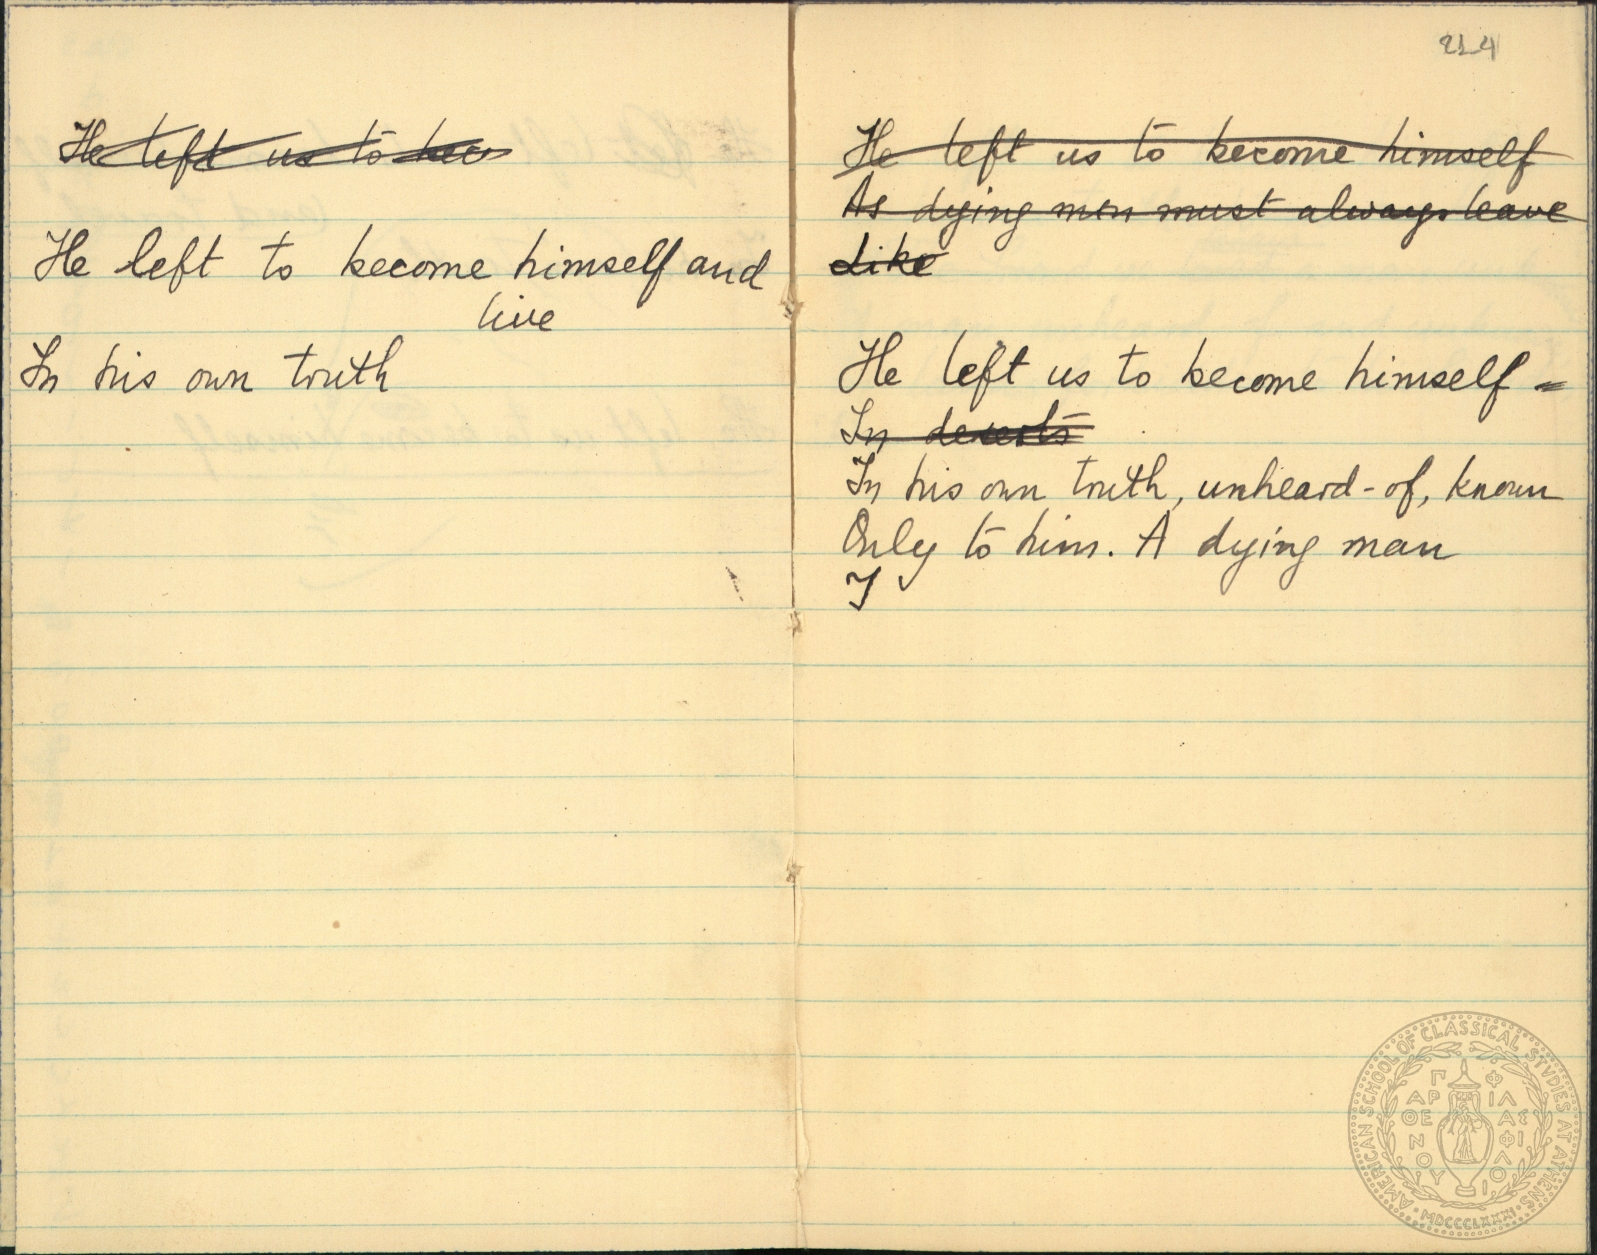 He left us to bec
He left to become himself and
live
In his own truth
214
He left us to become himself
As dying men must always leave
Like
He left us to become himself –
In deserts
In his own truth, unheard-of, known
Only to him. A dying man
I
AMERICAN SCHOOL OF CLASSICAL STUDIES AT ATHENS
MDCCCLXXXI
ΠΑΡΘΕΝΟΥ
ΦΙΛΑΣ ΦΙΛΟΙ